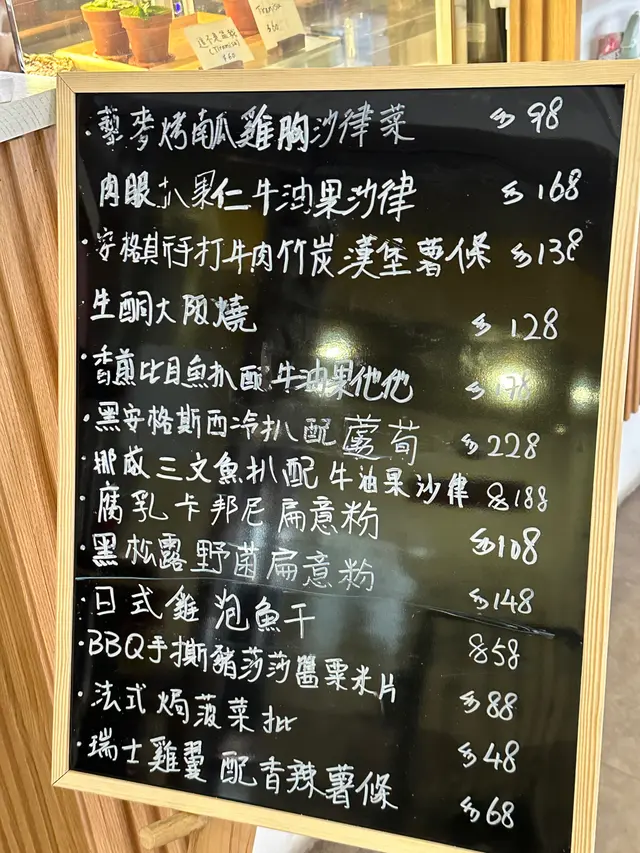 Tiramisu
$60
(Tiramisu)
$60
·藜麥烤南瓜雞胸沙律菜 $98
肉眼扒果仁牛油果沙律 $168
·安格斯手打牛肉竹炭漢堡薯條 $138
生酮大阪燒 $128
·香煎比目魚扒配牛油果他他 $178
·黑安格斯西冷扒配蘆荀 $228
·挪威三文魚扒配牛油果沙律 $188
·腐乳卡邦尼扁意粉 $108
·黑松露野菌扁意粉 $148
·日式雞泡魚干 $58
·BBQ手撕豬莎莎醬粟米片 $88
·法式焗菠菜批 $48
·瑞士雞翼配香辣薯條 $68